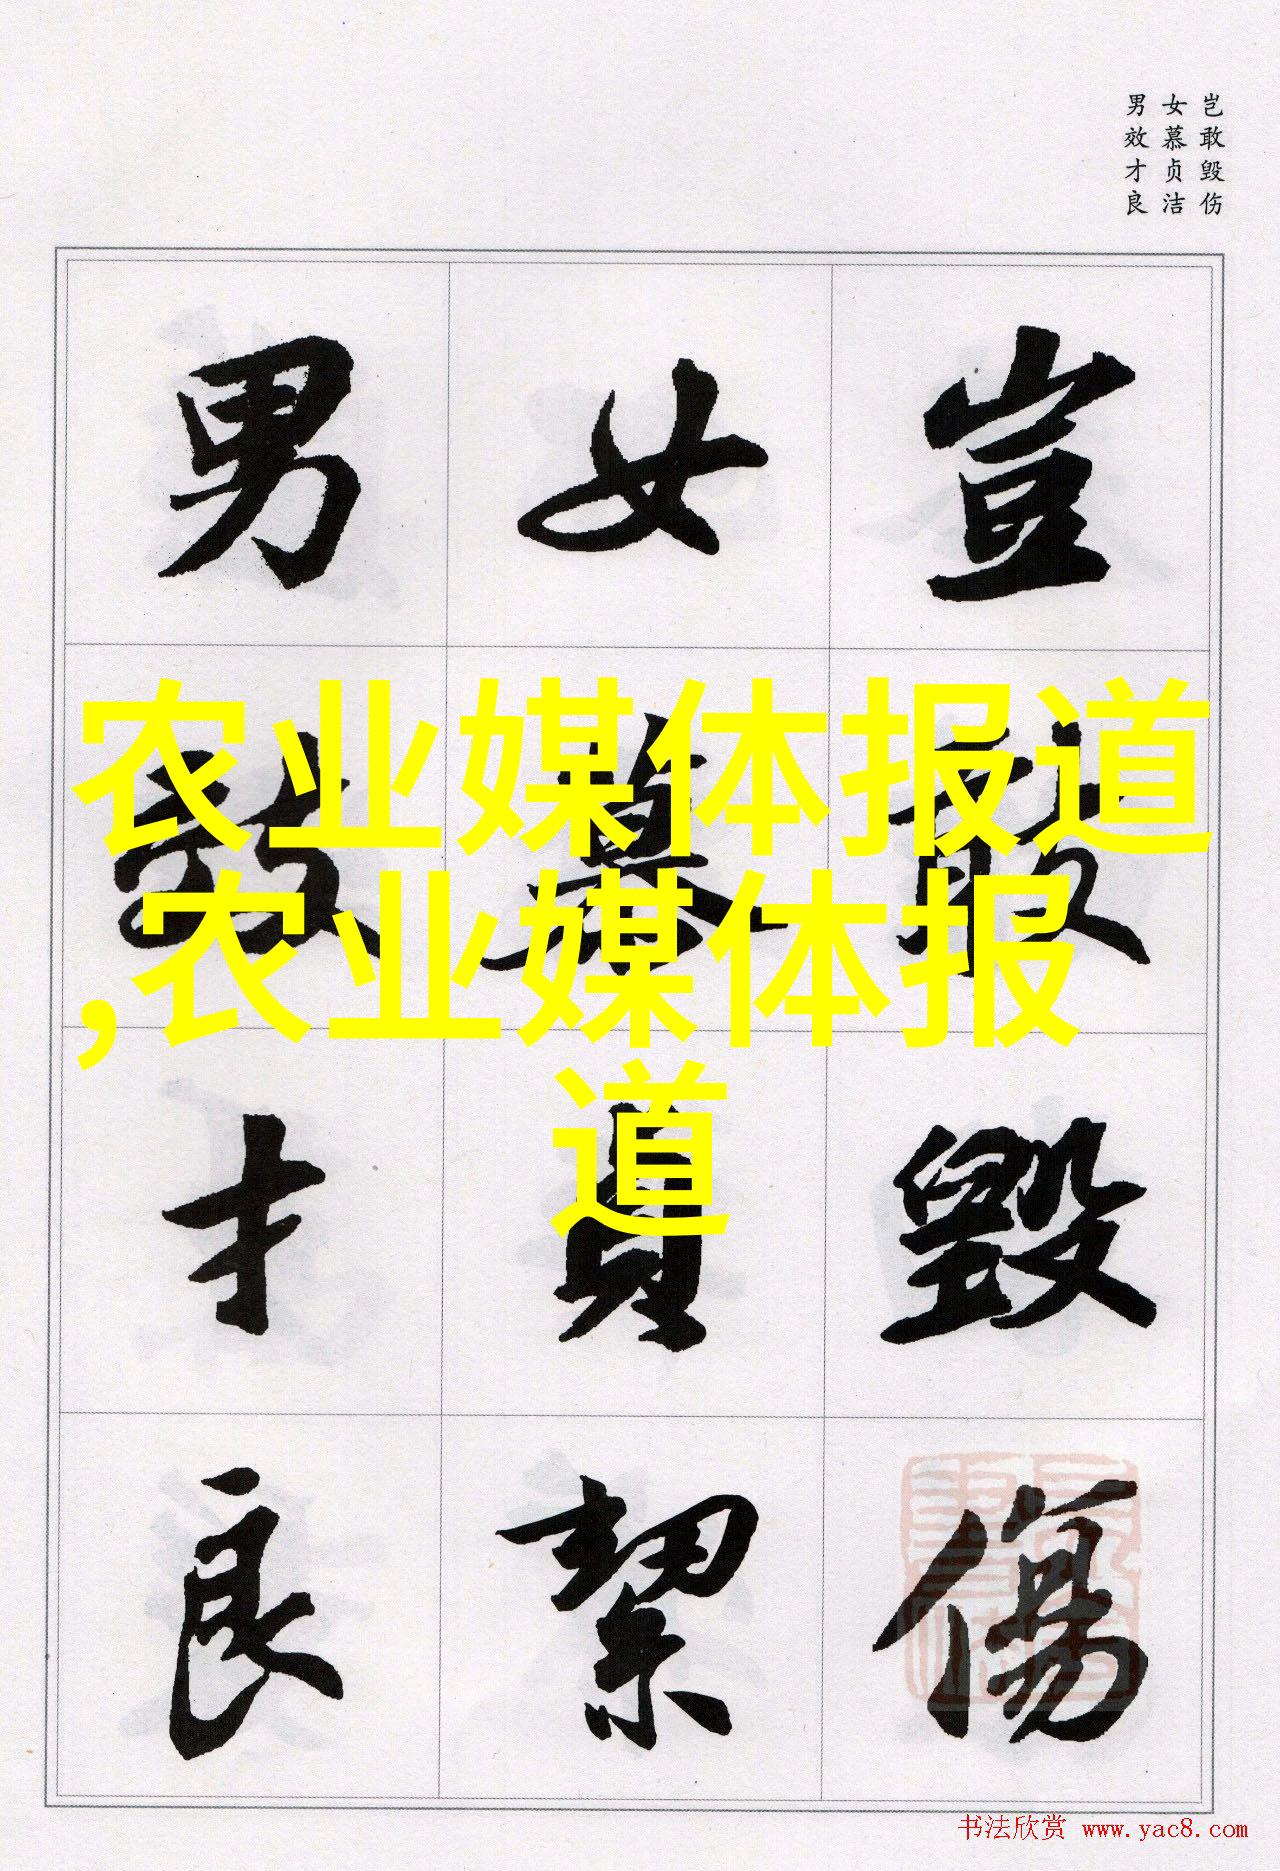 岂敢毁伤
女慕贞洁
男效才良
豈敢毀傷
女慕貞絜
男效才良
农业媒体报道
,农业媒体报
道
书法欣赏 www.yac8.com